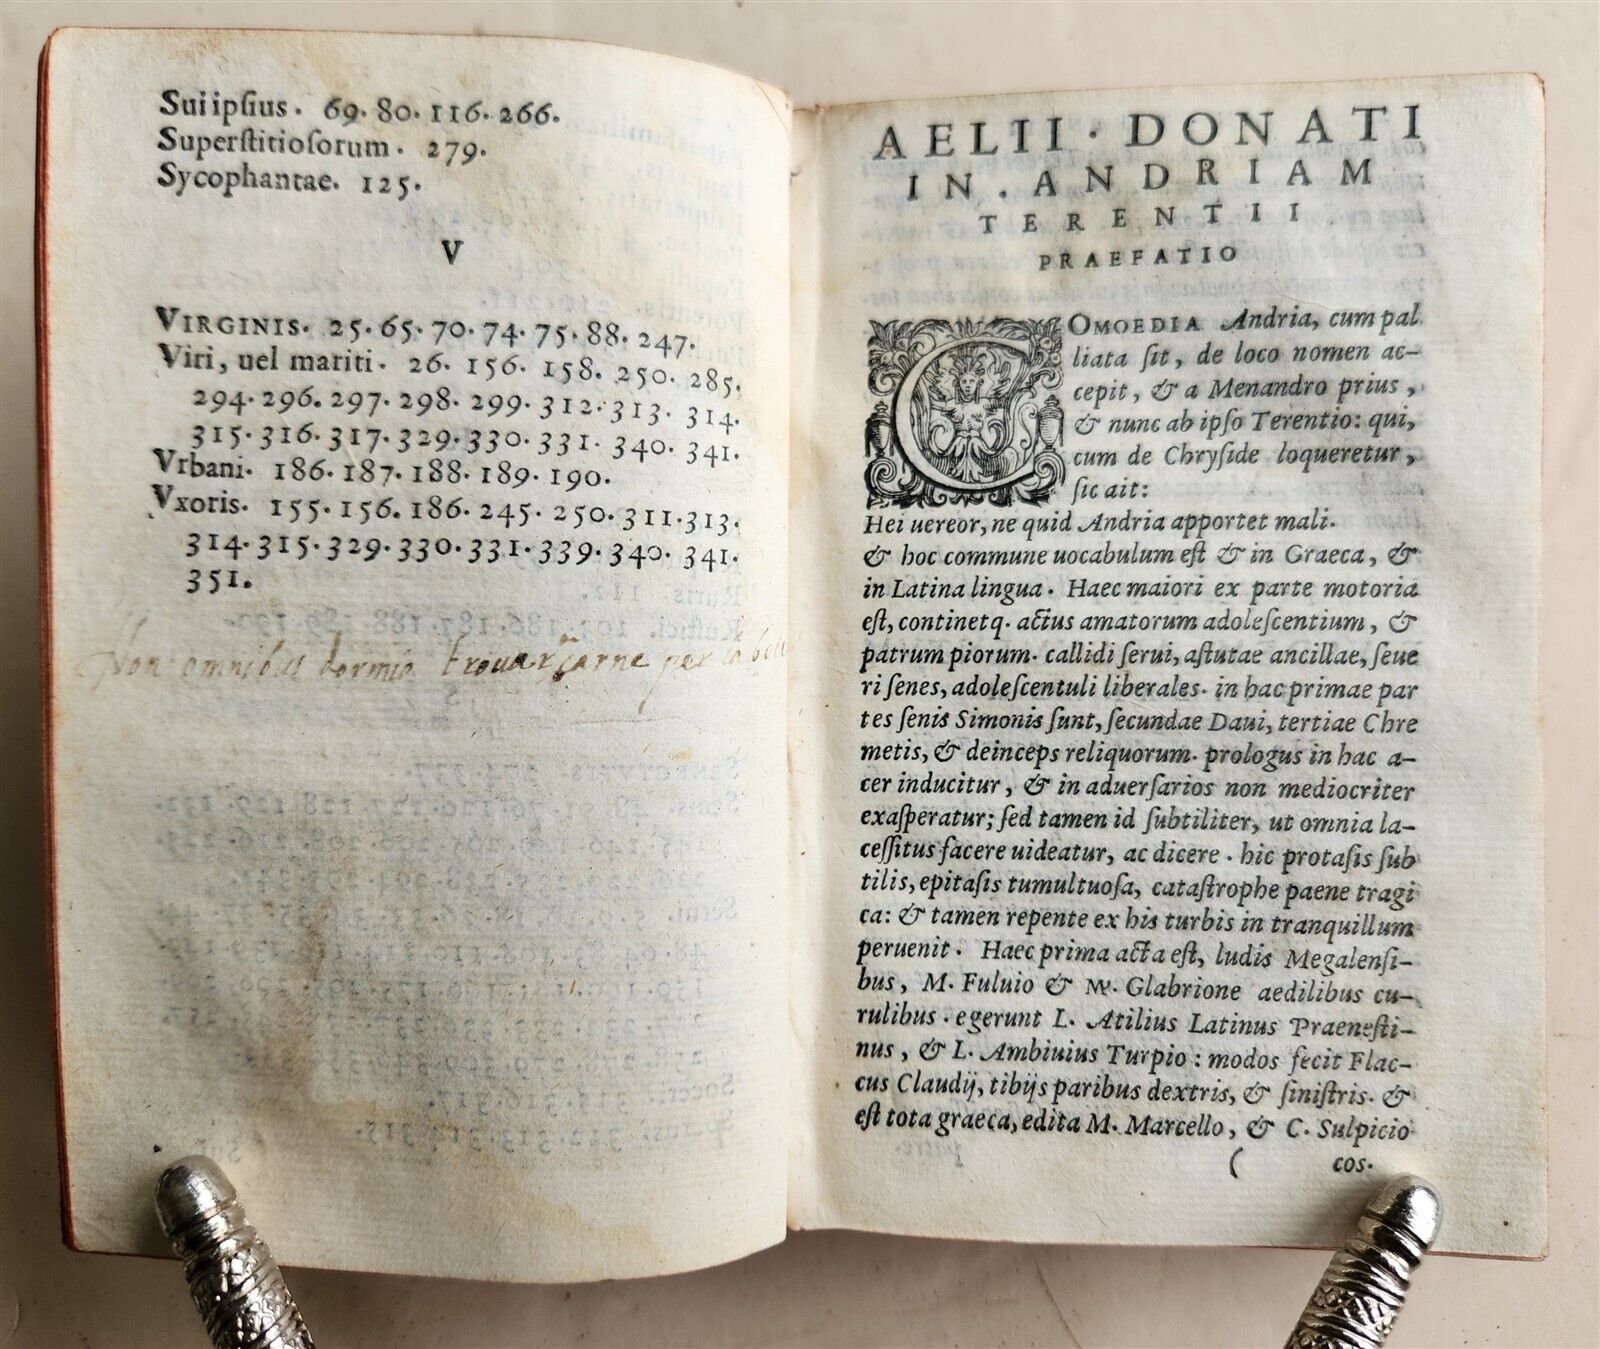 Sui ipſius. 69. 80. 116. 266.
Superſtitioſorum. 279.
Sycophantae. 125.
V
VIRGINIS. 25. 65. 70. 74. 75. 88. 247.
Viri, uel mariti. 26. 156. 158. 250. 285.
294. 296. 297. 298. 299. 312. 313. 314.
315. 316. 317. 329. 330. 331. 340. 341.
Vrbani. 186. 187. 188. 189. 190.
Vxoris. 155. 156. 186. 245. 250. 311. 313.
314. 315. 329. 330. 331. 339. 340. 341.
351.
Non omnibus dormio per la
AELII. DONATI
IN. ANDRIAM
TERENTII
PRAEFATIO
COMOEDIA Andria, cum pal
liata ſit, de loco nomen ac-
cepit, & a Menandro prius,
& nunc ab ipſo Terentio: qui,
cum de Chryſide loqueretur,
ſic ait:
Hei uereor, ne quid Andria apportet mali.
& hoc commune uocabulum eſt & in Graeca, &
in Latina lingua. Haec maiori ex parte motoria
eſt, continetq. actus amatorum adoleſcentium, &
patrum piorum. callidi ſerui, aſtutae ancillae, ſeue
ri ſenes, adoleſcentuli liberales. in hac primae par
tes ſenis Simonis ſunt, ſecundae Daui, tertiae Chre
metis, & deinceps reliquorum. prologus in hac a-
cer inducitur, & in aduerſarios non mediocriter
exaſperatur; ſed tamen id ſubtiliter, ut omnia la-
ceſſitus facere uideatur, ac dicere. hic protaſis ſub
tilis, epitaſis tumultuoſa, cataſtrophe paene tragi
ca: & tamen repente ex his turbis in tranquillum
peruenit. Haec prima acta eſt, ludis Megalenſi-
bus, M. Fuluio & M. Glabrione aedilibus cu-
rulibus. egerunt L. Atilius Latinus Praeneſti-
nus, & L. Ambiuius Turpio: modos fecit Flac-
cus Claudij, tibijs paribus dextris, & ſiniſtris. &
eſt tota graeca, edita M. Marcello, & C. Sulpicio
( cos.